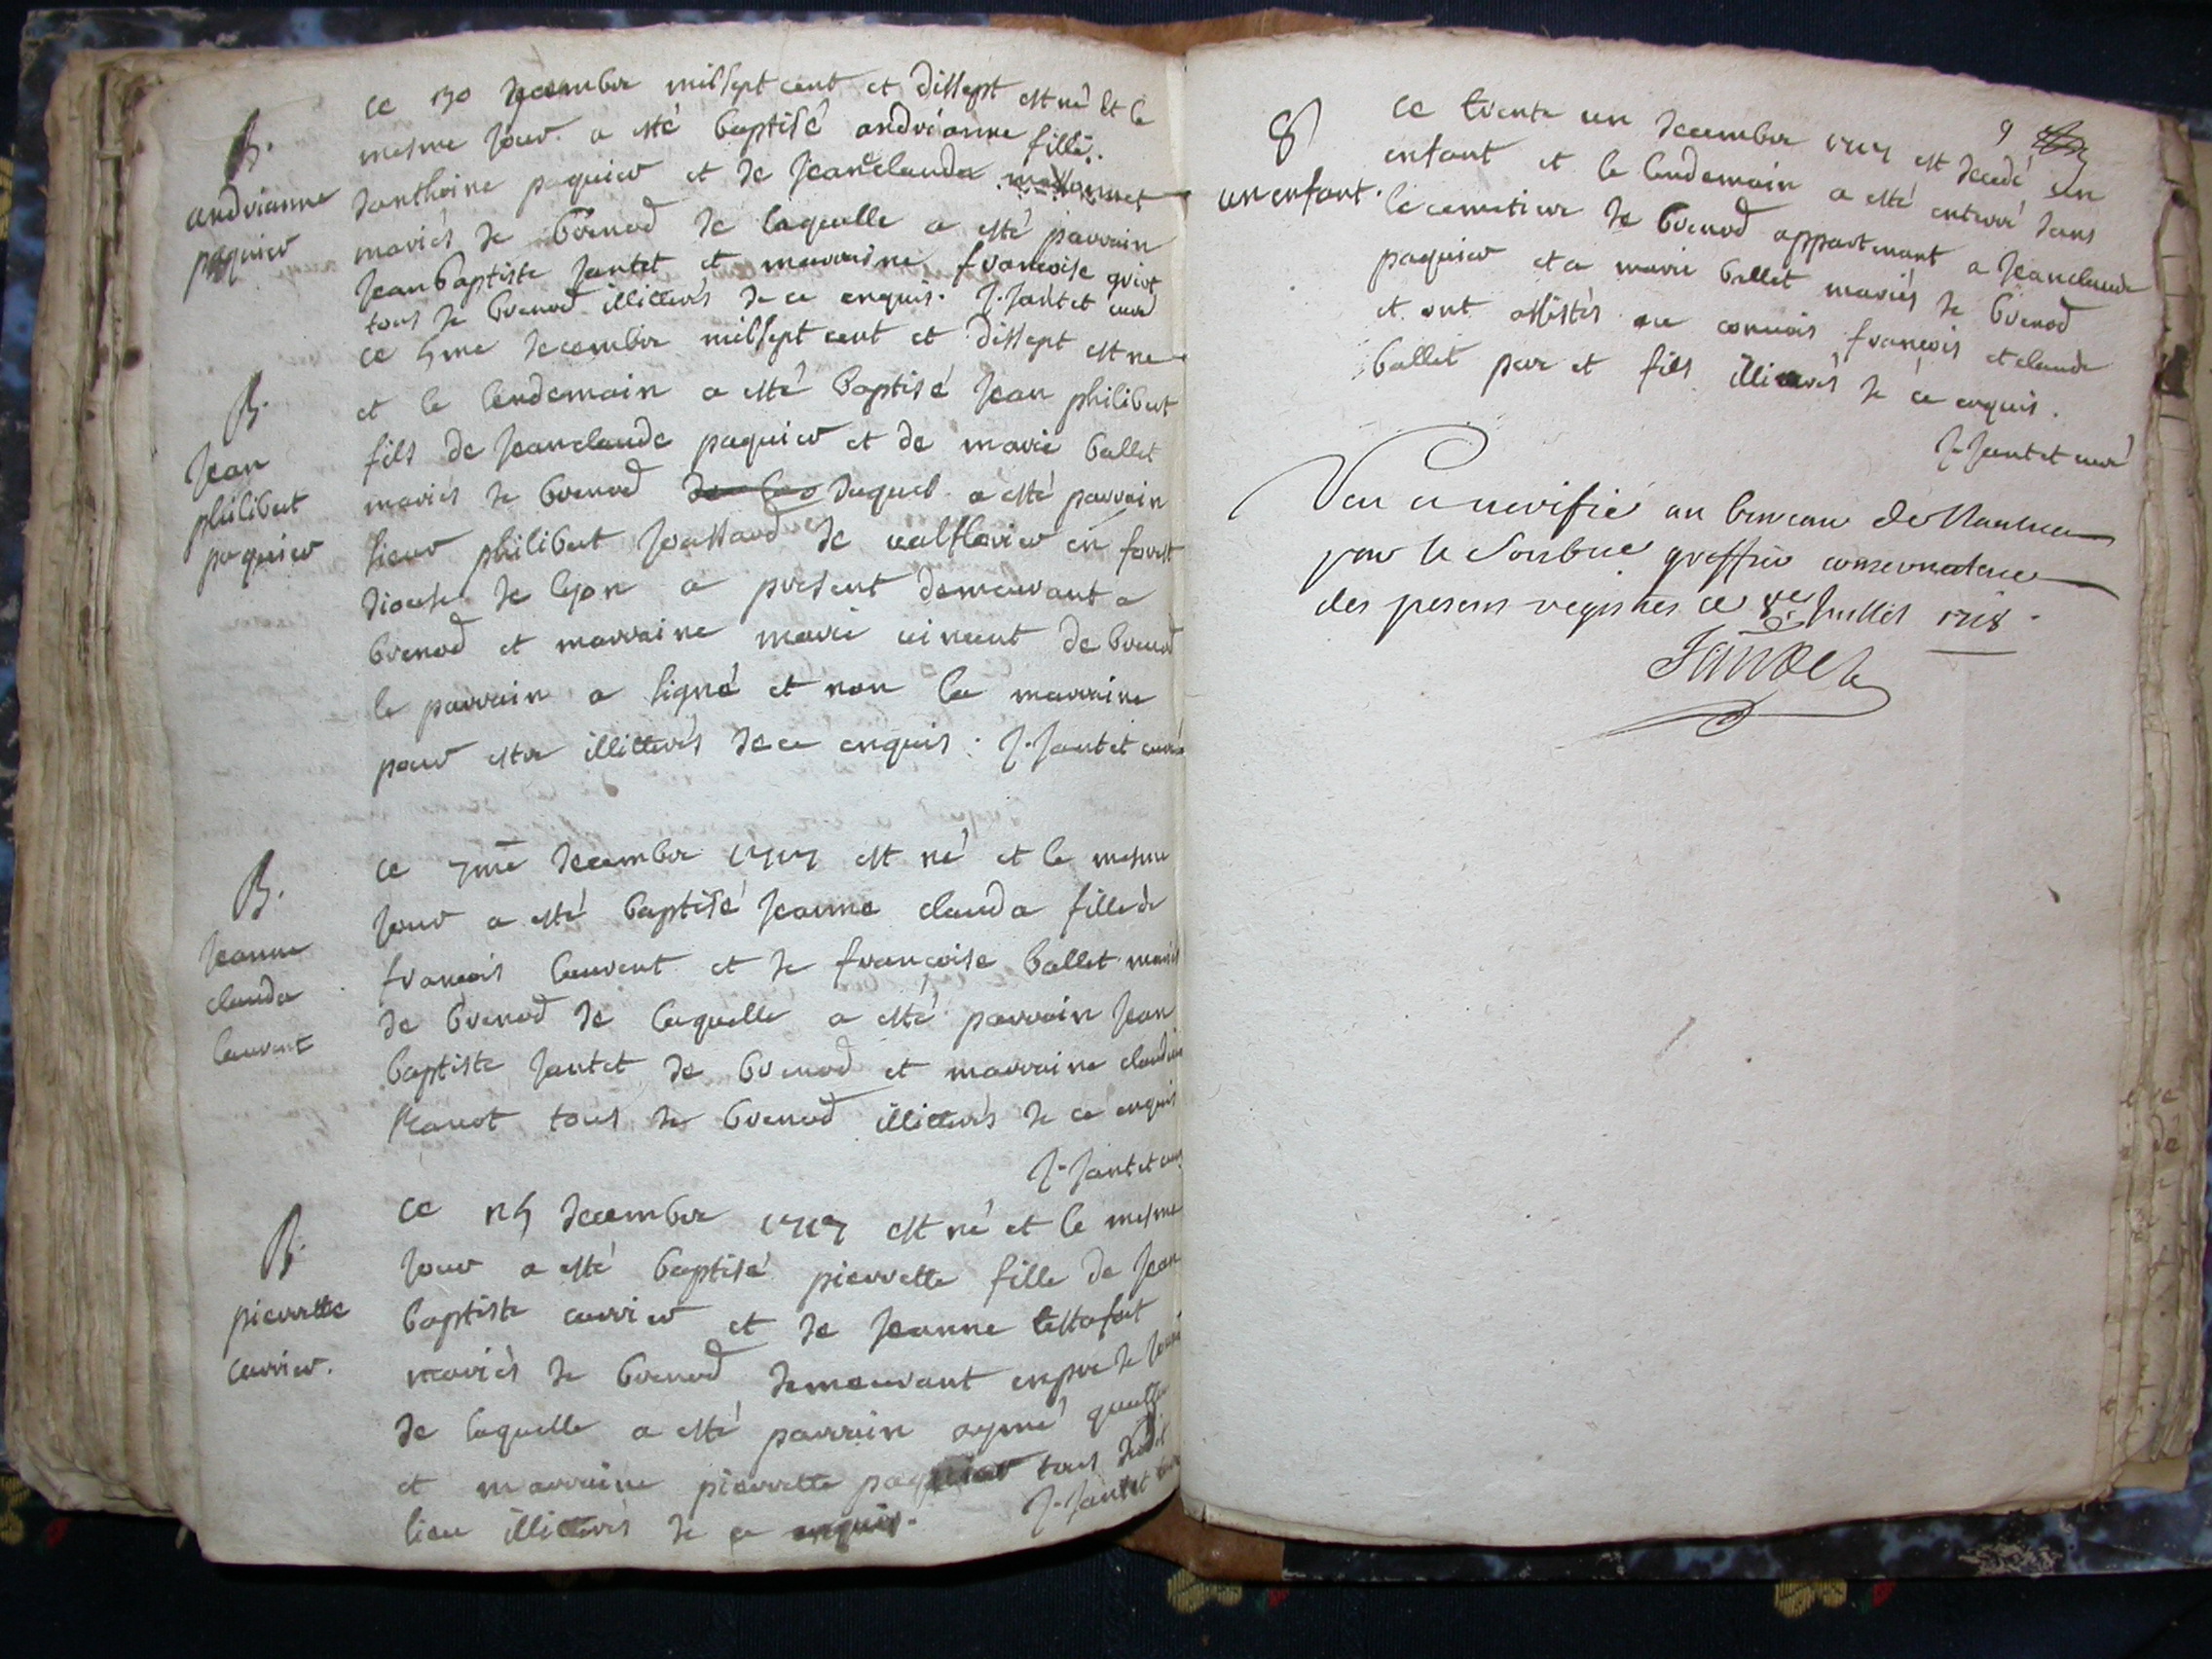 B.
andrianne
paquier
ce decembre mil sept cent et dissept est né et le
mesme jour a esté baptisé andrianne fille
danthoine paquier et de Jeanclauda
mariés de brenod de laquelle a esté parrain
Jean baptiste Jantet et marraine francoise
tous de brenod illitterés de ce enquis. J. Jantet curé
B.
Jean
philibert
paquier
ce 5me decembre mil sept cent et dissept est né
et le lendemain a esté baptisé Jean philibert
fils de Jeanclaude paquier et de marie ballet
mariés de brenod duquel a esté parrain
sieur philibert de en forest
diocese de lyon a present demeurant a
brenod et marraine marie de brenod
le parrain a signé et non la marraine
pour estre illitterés de ce enquis. J. Jantet curé
B.
Jeanne
clauda
laurent
ce 7me decembre 1717 est né et le mesme
jour a esté baptisé Jeanne clauda fille de
francois laurent et de francoise ballet mariés
de brenod de laquelle a esté parrain Jean
baptiste Jantet de brenod et marraine
tous de brenod illitterés de ce enquis
J. Jantet curé
B.
pierrette
carrier.
ce decembre 1717 est né et le mesme
jour a esté baptisé pierrette fille de Jean
baptiste carrier et de Jeanne
mariés de brenod demeurant
de laquelle a esté parrain aymé
et marraine pierrette paquier tous dudit
lieu illitterés de ce enquis. J. Jantet curé
9
8
un enfant.
ce trente un decembre 1717 est decedé un
enfant et le lendemain a esté enterré dans
le cemetiere de brenod appartenant a Jeanclaude
paquier et a marie ballet mariés de brenod
et ont assistés au convois francois et claude
ballet pere et fils illiterés de ce enquis.
J. Jantet curé
Veu et verifié au bureau de Nantua
par le Soubné greffier conservateur
des presens registres ce 8e Juillet 1718.